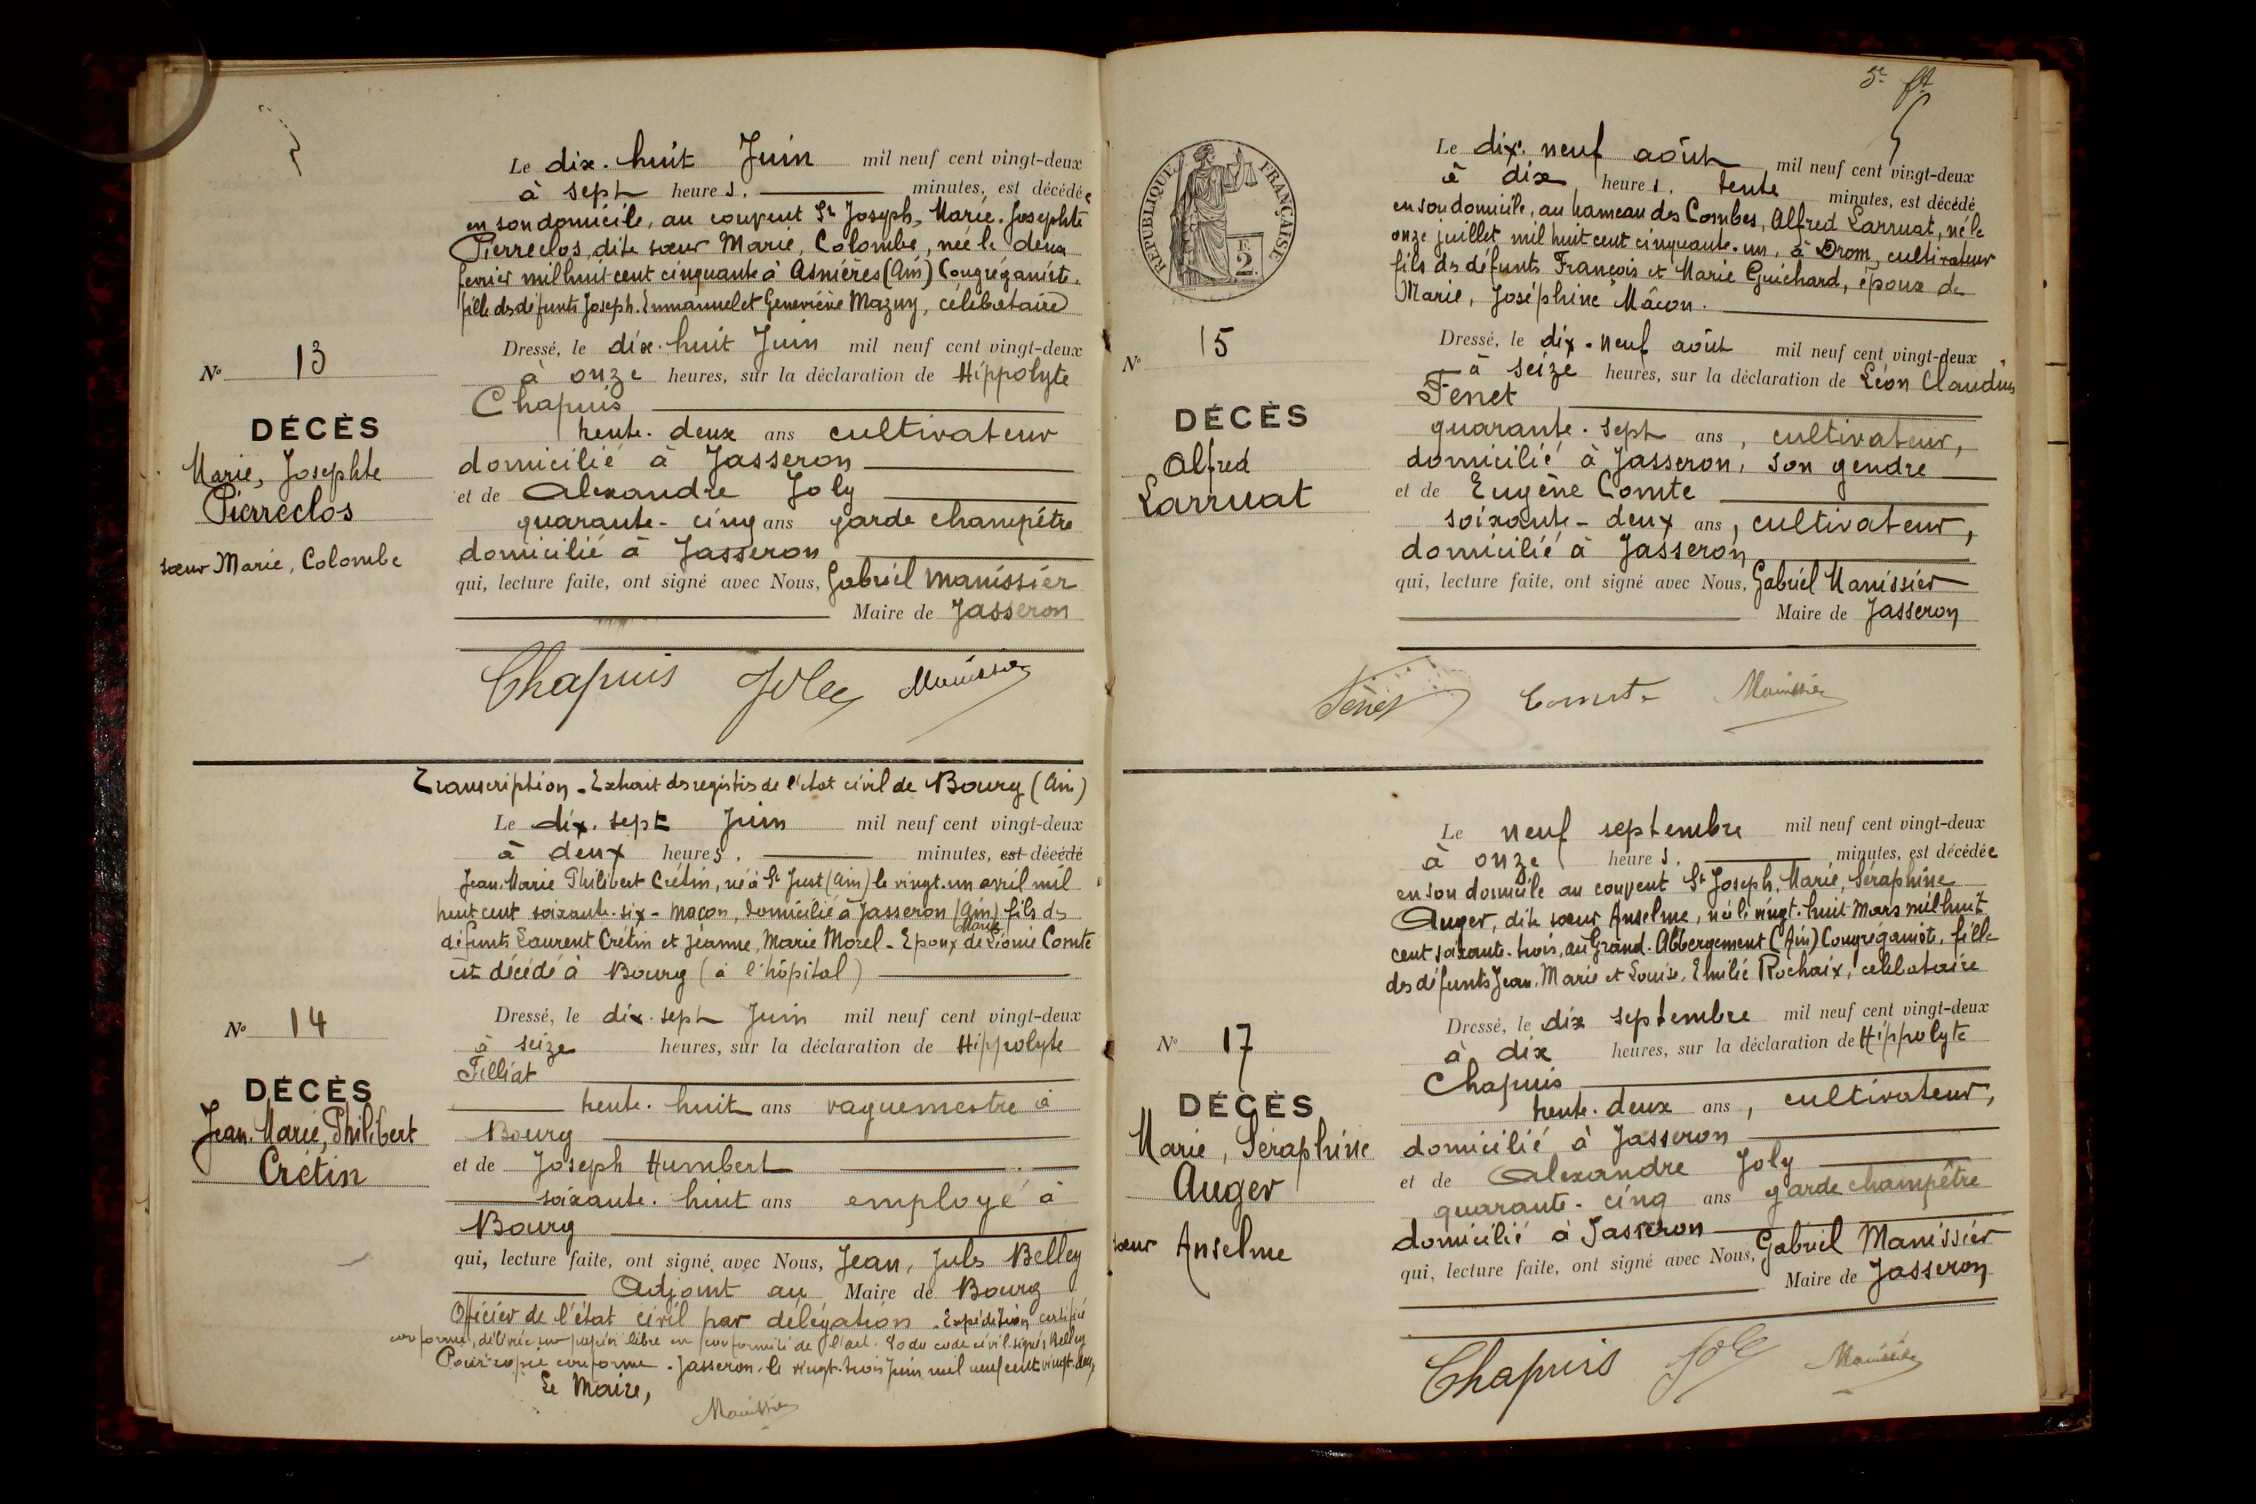 Le dix-huit Juin mil neuf cent vingt-deux
à sept heures. minutes, est décédée
en son domicile, au couvent St Joseph, Marie, Josephte
Pierreclos, dite sœur Marie, Colombe, née le deux
fevrier mil huit cent cinquante à Asnières (Ain) Congréganiste,
fille des défunts Joseph. Emmanuel et Geneviève Mazuy, célibataire
Dressé, le dix-huit Juin mil neuf cent vingt-deux
à onze heures, sur la déclaration de Hippolyte
Chapuis
trente-deux ans cultivateur
domicilié à Jasseron
et de Alexandre Joly
quarante-cinq ans garde champêtre
domicilié à Jasseron
qui, lecture faite, ont signé avec Nous, Gabriel Manissier
Maire de Jasseron
Chapuis Joly Manissier
No 13
DÉCÈS
Marie, Josephte
Pierreclos
sœur Marie, Colombe
Transcription - Extrait des registres de l'état civil de Bourg (Ain)
Le dix-sept Juin mil neuf cent vingt-deux
à deux heures. minutes, est décédé
Jean-Marie Philibert Crétin, né à St Just (Ain) le vingt-un avril mil
huit cent soixante-six - maçon, domicilié à Jasseron (Ain) fils des
défunts Laurent Crétin et Jeanne, Marie Morel - Epoux de Marie Léonie Comte
est décédé à Bourg (à l'hôpital)
Dressé, le dix-sept Juin mil neuf cent vingt-deux
à seize heures, sur la déclaration de Hippolyte
Filliat
trente-huit ans vaguemestre à
Bourg
et de Joseph Humbert
soixante-huit ans employé à
Bourg
qui, lecture faite, ont signé avec Nous, Jean, Jules Belley
Adjoint au Maire de Bourg
Officier de l'état civil par délégation. Expédition certifiée
conforme, délivrée sur papier libre en conformité de l'art. 80 du code civil. signé, Belley
Pour copie conforme. Jasseron, le vingt-trois Juin mil neuf cent vingt-deux
Le Maire,
Manissier
No 14
DÉCÈS
Jean-Marie, Philibert
Crétin
5e ft
RÉPUBLIQUE FRANÇAISE
2F.
Le dix-neuf août mil neuf cent vingt-deux
à dix heures. tente minutes, est décédé
en son domicile, au hameau des Combes, Alfred Larruat, né le
onze juillet mil huit cent cinquante-un, à Drom, cultivateur
fils des défunts François et Marie Guichard, époux de
Marie, Joséphine Mâcon.
Dressé, le dix-neuf août mil neuf cent vingt-deux
à seize heures, sur la déclaration de Léon Claudius
Fenet
quarante-sept ans, cultivateur,
domicilié à Jasseron, son gendre
et de Eugène Comte
soixante-deux ans, cultivateur,
domicilié à Jasseron
qui, lecture faite, ont signé avec Nous, Gabriel Manissier
Maire de Jasseron
Fenet Comte Manissier
No 15
DÉCÈS
Alfred
Larruat
Le neuf septembre mil neuf cent vingt-deux
à onze heures. minutes, est décédée
en son domicile au couvent St Joseph, Marie, Séraphine
Auger, dite sœur Anselme, née le vingt-huit Mars mil huit
cent soixante-trois, au Grand-Abbergement (Ain) Congréganiste, fille
des défunts Jean-Marie et Louise, Emilie Rochaix, célibataire
Dressé, le dix septembre mil neuf cent vingt-deux
à dix heures, sur la déclaration de Hippolyte
Chapuis
trente-deux ans, cultivateur,
domicilié à Jasseron
et de Alexandre Joly
quarante-cinq ans garde champêtre
domicilié à Jasseron
qui, lecture faite, ont signé avec Nous, Gabriel Manissier
Maire de Jasseron
Chapuis Joly Manissier
No 17
DÉCÈS
Marie, Séraphine
Auger
sœur Anselme